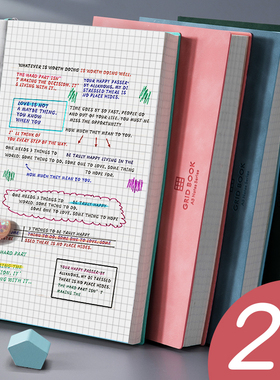 WHATEVER IS WORTH DOING IS WORTH DOING WELL.
THE HARD PART ISN'
T MAKING THE DECISION.
LIVING WITH IT.
YOUR HAPPY PASSER-BY
ALLKNOWS, MY DI
STRESSED THERE IS
NO PLACE HIDES.
LOVE IS NOT
A MAYBE THING.
YOU KNOW
WHEN YOU
TIME GOES BY SO FAST, PEOPLE GO
IN AND OUT OF YOUR LIFE. YOU MUST
MISS THE OPPORTUNITY
HOW MUCH THEY MEAN TO YOU.
I'LL THINK OF
YOU EVERY STEP OF THE WAY.
ONE NEEDS 3 THINGS
TO BE TRULY HAPPY LIVING IN THE
WORLD: SOME THING TO DO,
SOME ONE TO LOVE, SOME THING TO HOPE
HOW MUCH THEY MEAN TO YOU.
ONE NEEDS 3 THINGS TO
BE TRULY HAPPY
WORLD: SOME THING TO DO,
SOME ONE TO LOVE, SOME THING TO HOPE
3 THINGS TO BE TRULY HAPPY
THING TO DO, SOME ONE TO LOVE, SOME
SSED THERE IS NO PLACE HIDES.
HARD PART
WITH IT.
YOUR HAPPY PASSER-BY
ALLKNOWS, MY DI STRESSED
THERE IS NO PLACE HIDES.
THE HARD PART ISN' T
MAKING THE
GRID BOOK
2